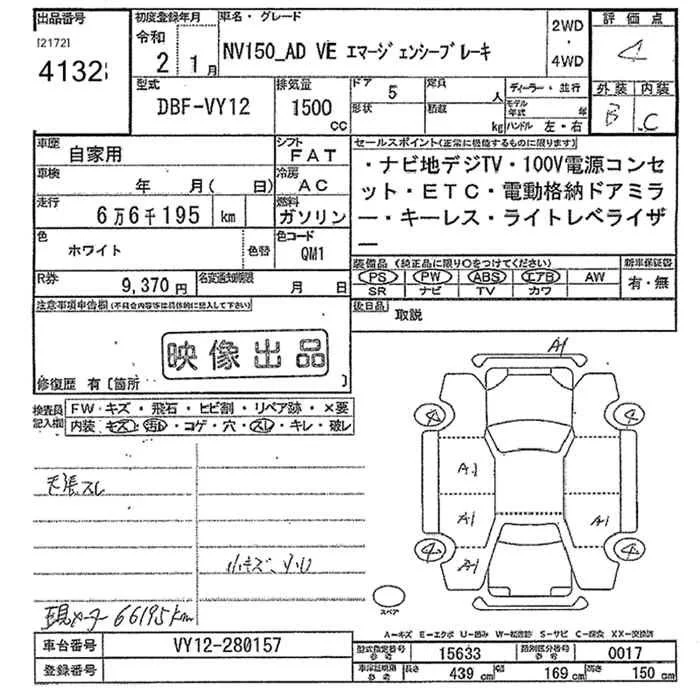 出品番号
[2172]
4132
初度登録年月
令和
2 1月
車名・グレード
NV150_AD VE エマージェンシーブレーキ
2WD
・
4WD
評価点
4
外装 内装
B C
型式
DBF-VY12
排気量
1500
CC
ドア 5
形状
定員 人
積載 kg
ディーラー・並行
モデル年式 年
ハンドル 左・右
車歴
自家用
シフト
FAT
車検
年 月( 日)
冷房
AC
走行
6万6千195 km
燃料
ガソリン
色
ホワイト
色替
色コード
QM1
R券
9,370円
名変通知期限
月 日
セールスポイント(正常に機能するものに限ります)
・ナビ地デジTV・100V電源コンセ
ット・ETC・電動格納ドアミラ
ー・キーレス・ライトレベライザ
ー
装備品 (純正品に限り○をつけてください)
新車保証書
PS PW ABS エアB AW
SR ナビ TV カワ
有・無
後日品
取説
注意事項申告欄(不具合内容等は具体的に記入して下さい)
映像出品
修復歴 有〔箇所 〕
検査員記入欄
FW・キズ・飛石・ヒビ割・リペア跡・×要
内装・キズ・汚れ・コゲ・穴・スレ・キレ・破レ
天張スレ
小キズ、
現メーター 66195km
A1
4
4
A1
A1
A1
A1
4
4
スペア
A-キズ E-エクボ U-凹み W-補修跡 S-サビ C-腐食 XX-交換済
車台番号
VY12-280157
登録番号
型式指定番号
参考
15633
類別区分番号
参考
0017
車体証明現
参考
長さ 439 cm
幅 169 cm
高さ 150 cm